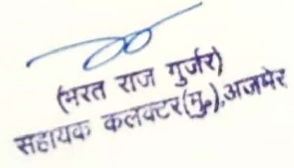 (भरत राज गुर्जर)
सहायक कलक्टर(मु॰),अजमेर